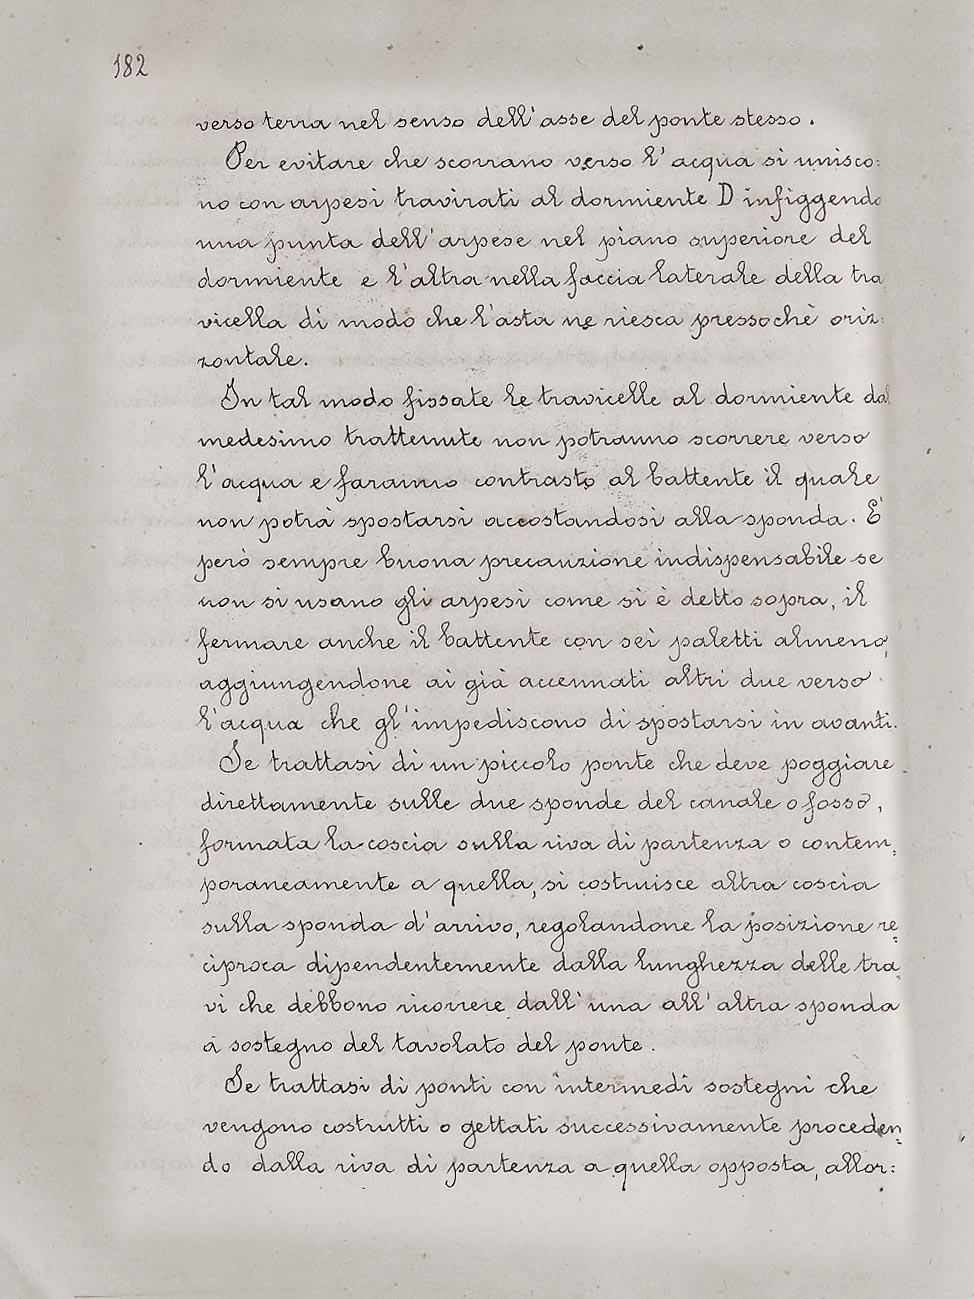 182
verso terra nel senso dell'asse del ponte stesso.
Per evitare che scorrano verso l'acqua si unisco:
no con arpesi travirati al dormiente D infiggendo
una punta dell'arpese nel piano superiore del
dormiente e l'altra nella faccia laterale della tra
vicella di modo che l'asta ne riesca pressochè oriz:
zontale.
In tal modo fissate le travicelle al dormiente dal
medesimo trattenute non potranno scorrere verso
l'acqua e faranno contrasto al battente il quale
non potrà spostarsi accostandosi alla sponda. È
però sempre buona precauzione indispensabile se
non si usano gli arpesi come si è detto sopra, il
fermare anche il battente con sei paletti almeno,
aggiungendone ai già accennati altri due verso
l'acqua che gl'impediscono di spostarsi in avanti.
Se trattasi di un piccolo ponte che deve poggiare
direttamente sulle due sponde del canale o fosso,
formata la coscia sulla riva di partenza o contem:
poraneamente a quella, si costruisce altra coscia
sulla sponda d'arrivo, regolandone la posizione re:
ciproca dipendentemente dalla lunghezza delle tra:
vi che debbono ricorrere dall'una all'altra sponda
a sostegno del tavolato del ponte.
Se trattasi di ponti con intermedi sostegni che
vengono costrutti o gettati successivamente proceden:
do dalla riva di partenza a quella opposta, allor: